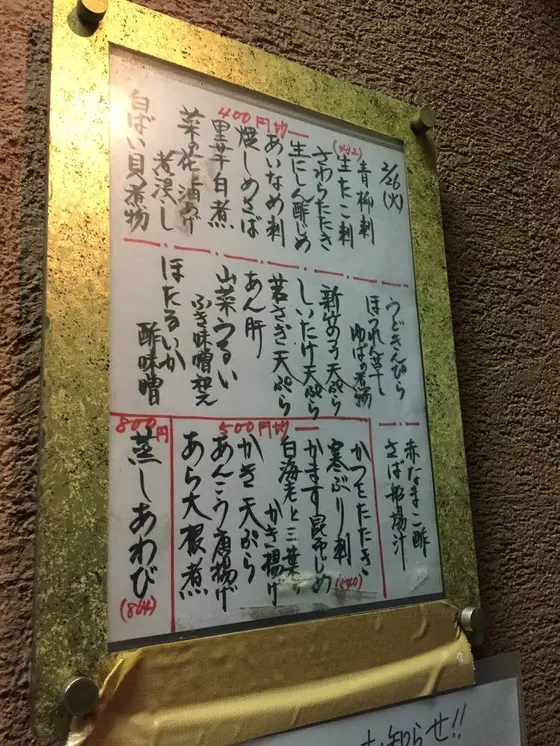 2/26(火)
400円均一
(432)
青柳刺
生たこ刺
さわらたたき
生にしん酢じめ
あいなめ刺
燻しめさば
里芋白煮
菜の花
煮浸し
白ばい貝煮物
うどきんぴら
ほうれん草と
ゆばの煮物
新竹の子天ぷら
しいたけ天ぷら
若さぎ天ぷら
あん肝
山菜うるい
ふき味噌和え
ほたるいか
酢味噌
赤なまこ酢
さば船場汁
500円均一
(540)
かつをたたき
寒ぶり刺
かます昆布じめ
白海老と三つ葉
かき揚げ
かき天ぷら
あんこう唐揚げ
あら大根煮
800円
蒸しあわび
(864)
お知らせ!!